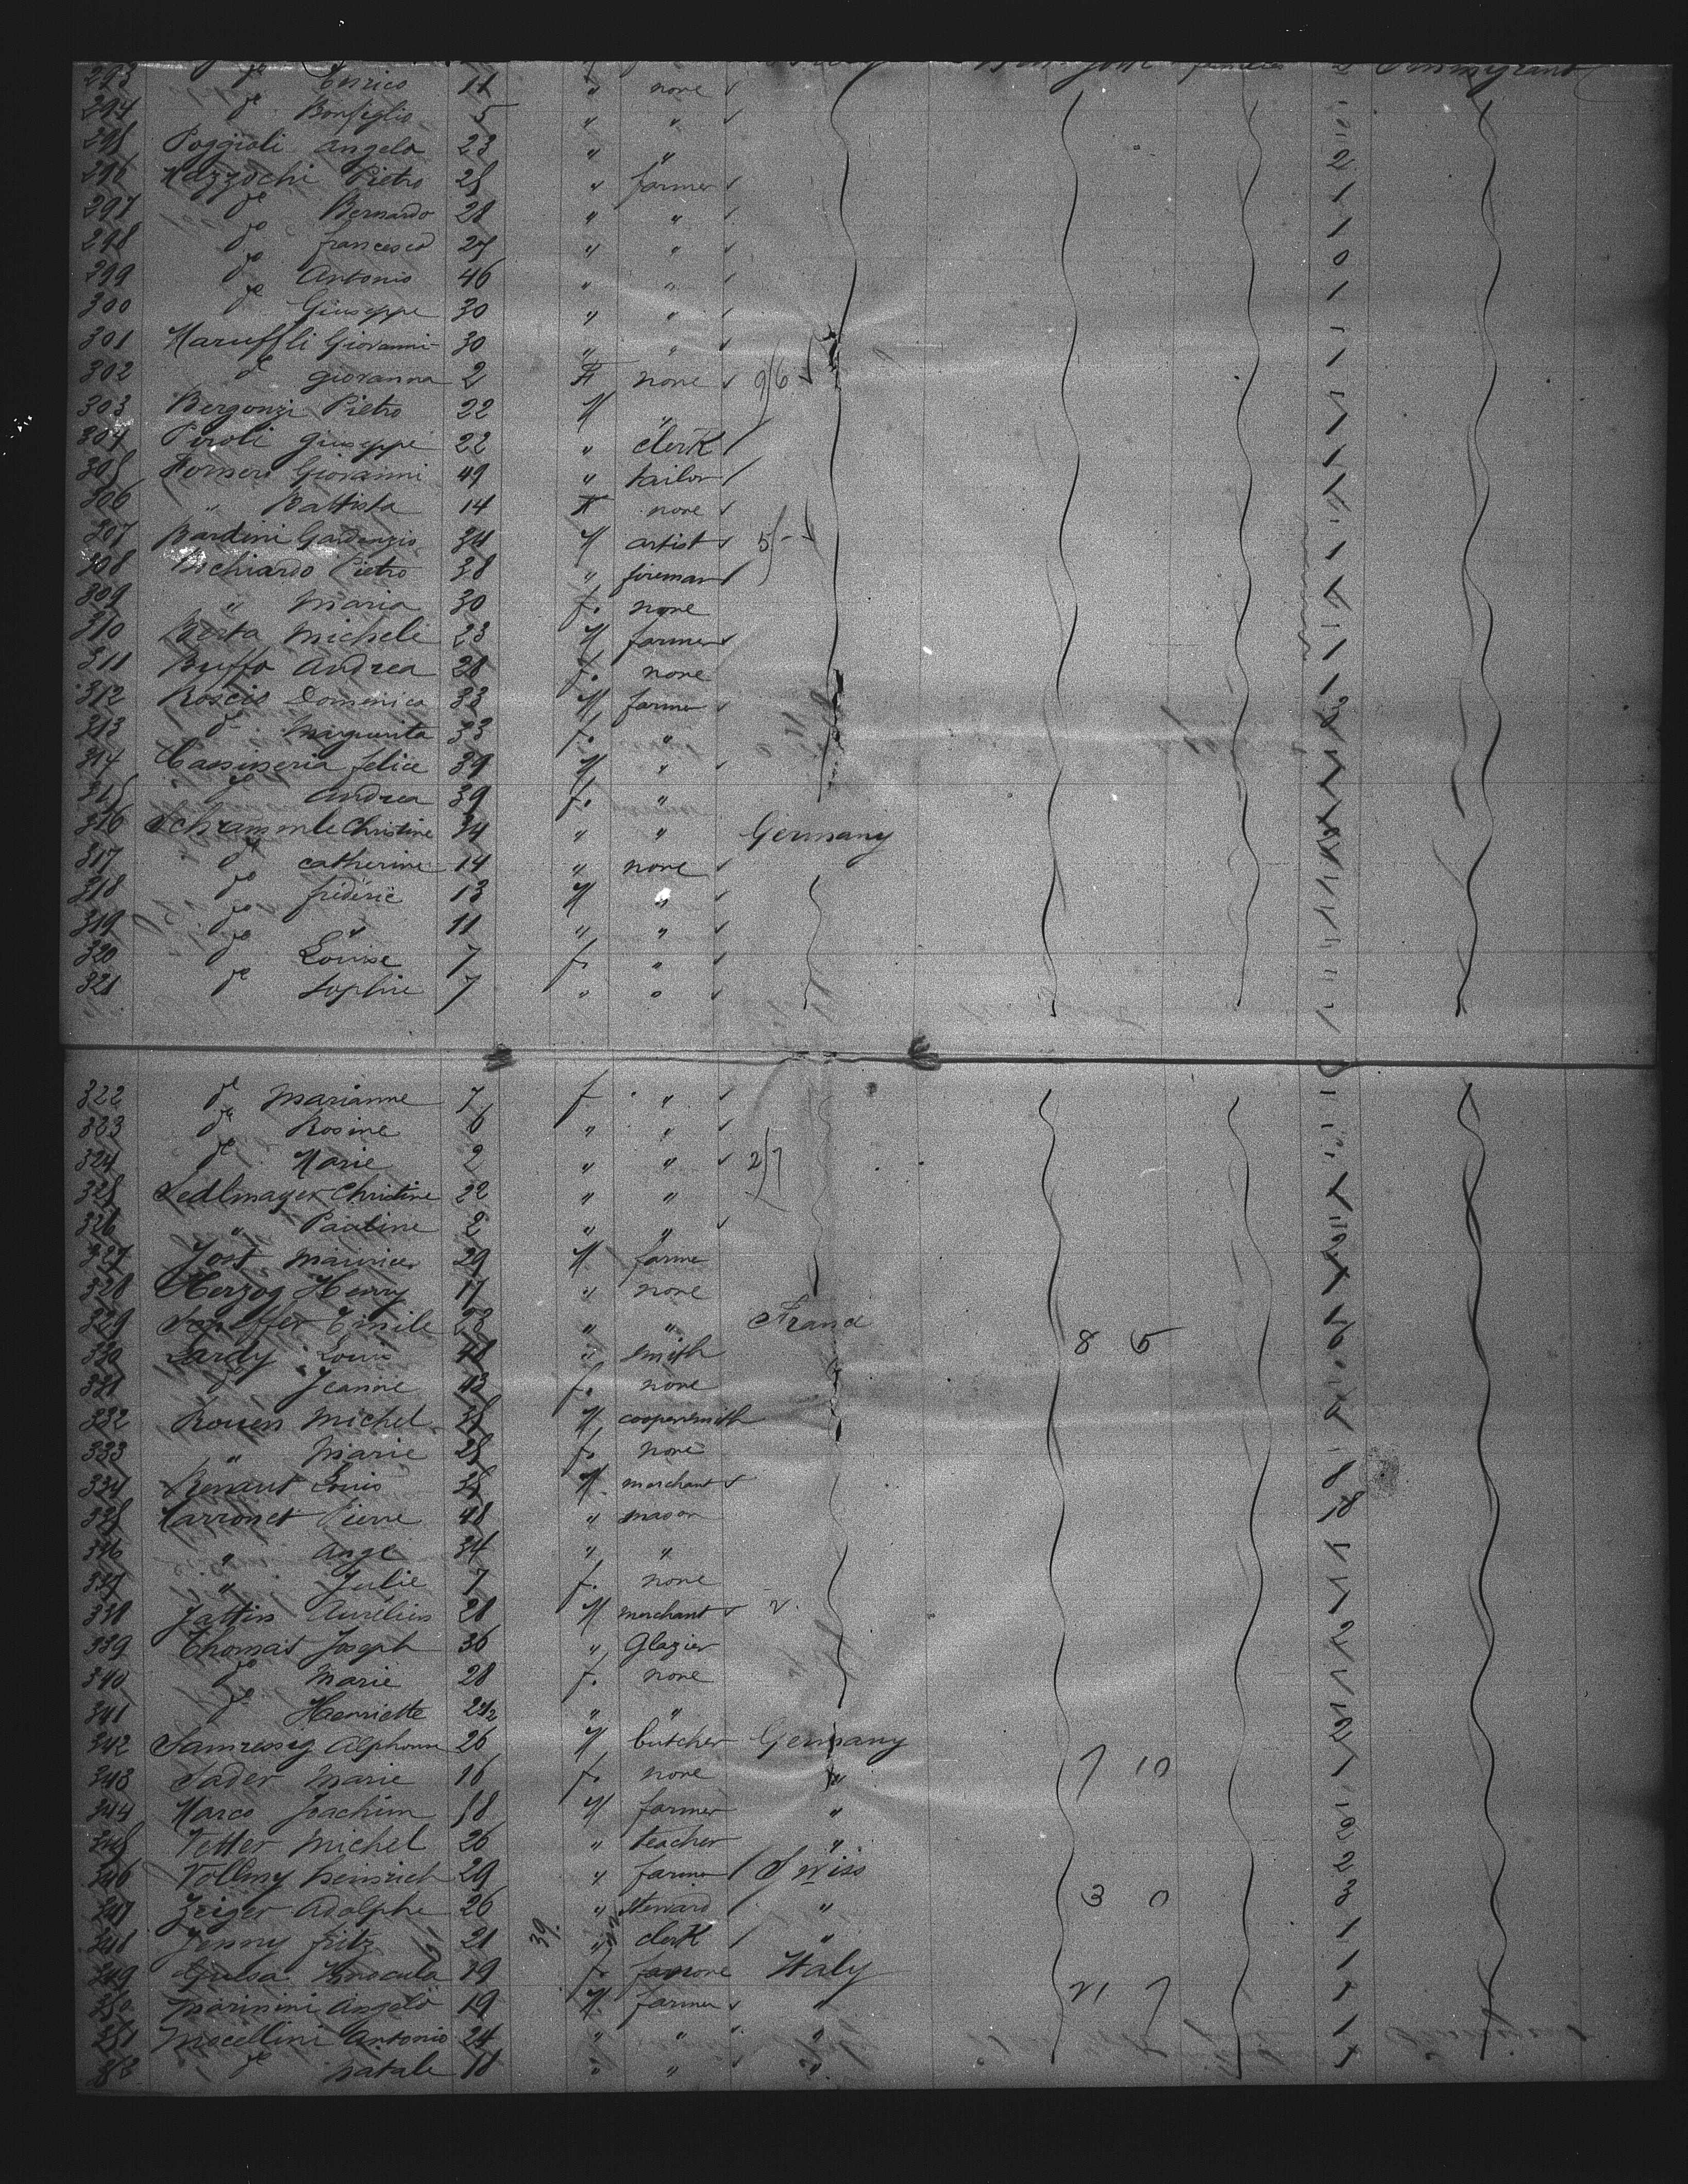 293 do Enrico 11 " none
294 do Bonfiglio 5 " "
295 Poggioli Angelo 23 " " 2
296 Mazzochi Pietro 25 " farmer 1
297 do Bernardo 28 " " 1
298 do francesco 27 " " 1
299 do Antonio 46 " " 0
300 do Giuseppe 30 " " 1
301 Maruffli Giovanni 30 " "
302 do giovanna 2 F none 9/6
303 Bergonzi Pietro 22 M "
304 Piroli Giuseppe 22 " clerk
305 Forneri Giovanni 49 " tailor
306 " Battista 14 F none
307 Bardini 34 M artist 5/-
308 Bichiardo Pietro 38 " fireman
309 " Maria 30 f. none
310 Berta Michele 23 M farmer
311 Buffo Andrea 28 f. none
312 Roscio Domenico 33 M farmer
313 do Marguerita 33 f. "
314 felice 39 M "
315 do Andrea 39 f. "
316 Schrammle Christine 34 " " Germany
317 do catherine 14 " none
318 do fréderic 13 M "
319 do " 11 " "
320 do Louise 7 f. "
321 do Sophie 7 " "
322 do Marianne 7 f "
323 do Rosine 6 " "
324 do Marie 2 " " 2/7
325 Sedlmayer Christine 22 " "
326 " Pauline 2 " "
327 Jost Maurice 29 M farme
328 Herzog Henry 17 " none
329 Emile 28 " " France
330 Lardy Louis 48 " smith 8 5
331 do Jeanne 43 f. none
332 Rouen Michel 35 M coopersmith
333 " Marie 25 f. none
334 Renaut Louis 35 M merchant 8
335 Marronet Pierre 48 " mason 18
336 " Ange 34 " "
337 " Julie 7 f. none
338 Jattin Aurélien 28 M merchant
339 Thomas Joseph 36 " Glazier 2
340 do Marie 28 f. none
341 do Henriette 2 1/2 " "
342 Alphonse 26 M butcher Germany 2
343 Sader Marie 16 f. none " 7 10 1
344 Marco Joachim 58 M farmer "
345 Vetter Michel 26 " teacher " 2
346 Vollmy heinrich 29 " farmer Swiss 2
347 Zeiger Adolphe 26 " Steward " 3 0 3
348 Jenny fritz 21 39. " clerk " 1
349 19 f. none Italy 1
350 Marinini Angelo 19 M farmer " 21 7
351 Mocellini Antonio 24 " " " 1
do Natale 11 " " "